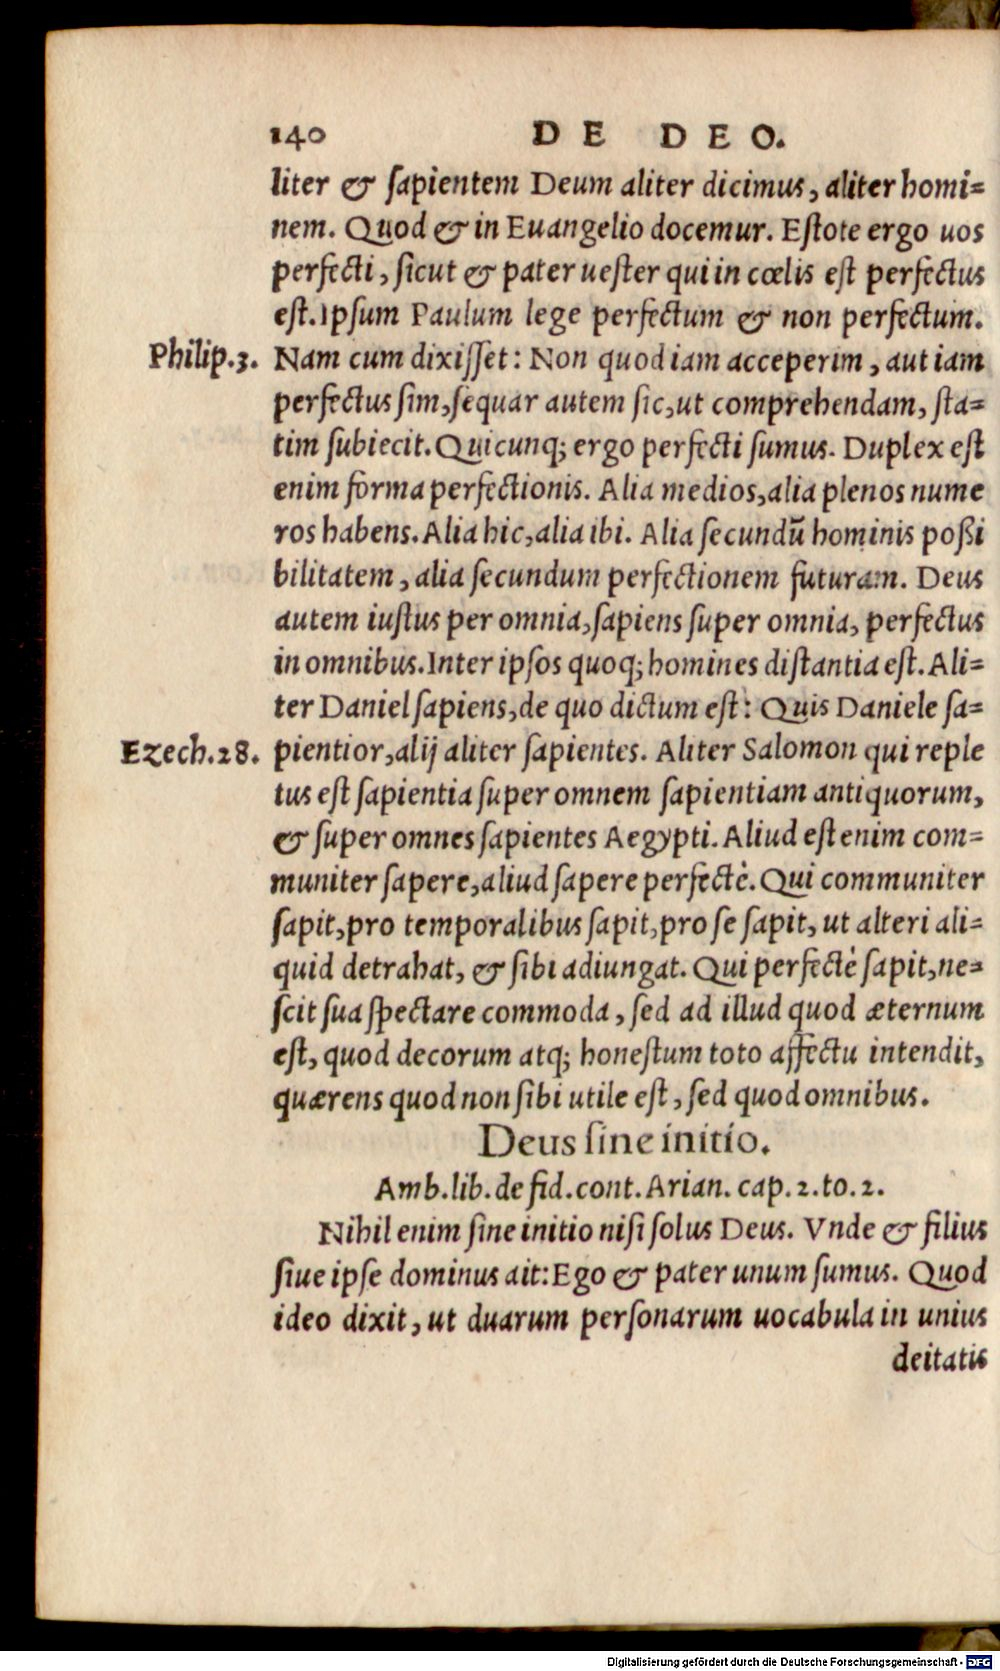 140 DE DEO.
liter & sapientem Deum aliter dicimus, aliter homi=
nem. Quod & in Euangelio docemur. Estote ergo uos
perfecti, sicut & pater uester qui in cœlis est perfectus
est. Ipsum Paulum lege perfectum & non perfectum.
Philip.3. Nam cum dixisset: Non quod iam acceperim, aut iam
perfectus sim, sequar autem sic, ut comprehendam, sta=
tim subiecit. Quicunq; ergo perfecti sumus. Duplex est
enim forma perfectionis. Alia medios, alia plenos nume
ros habens. Alia hic, alia ibi. Alia secundũ hominis possi
bilitatem, alia secundum perfectionem futuram. Deus
autem iustus per omnia, sapiens super omnia, perfectus
in omnibus. Inter ipsos quoq; homines distantia est. Ali=
ter Daniel sapiens, de quo dictum est: Quis Daniele sa=
Ezech.28. pientior, alij aliter sapientes. Aliter Salomon qui reple
tus est sapientia super omnem sapientiam antiquorum,
& super omnes sapientes Aegypti. Aliud est enim com=
muniter sapere, aliud sapere perfectè. Qui communiter
sapit, pro temporalibus sapit, pro se sapit, ut alteri ali=
quid detrahat, & sibi adiungat. Qui perfectè sapit, ne=
scit sua spectare commoda, sed ad illud quod æternum
est, quod decorum atq; honestum toto affectu intendit,
quærens quod non sibi utile est, sed quod omnibus.
Deus sine initio.
Amb. lib. de fid. cont. Arian. cap. 2. to. 2.
Nihil enim sine initio nisi solus Deus. Vnde & filius
siue ipse dominus ait: Ego & pater unum sumus. Quod
ideo dixit, ut duarum personarum uocabula in unius
deitatis
Digitalisierung gefördert durch die Deutsche Forschungsgemeinschaft - DFG